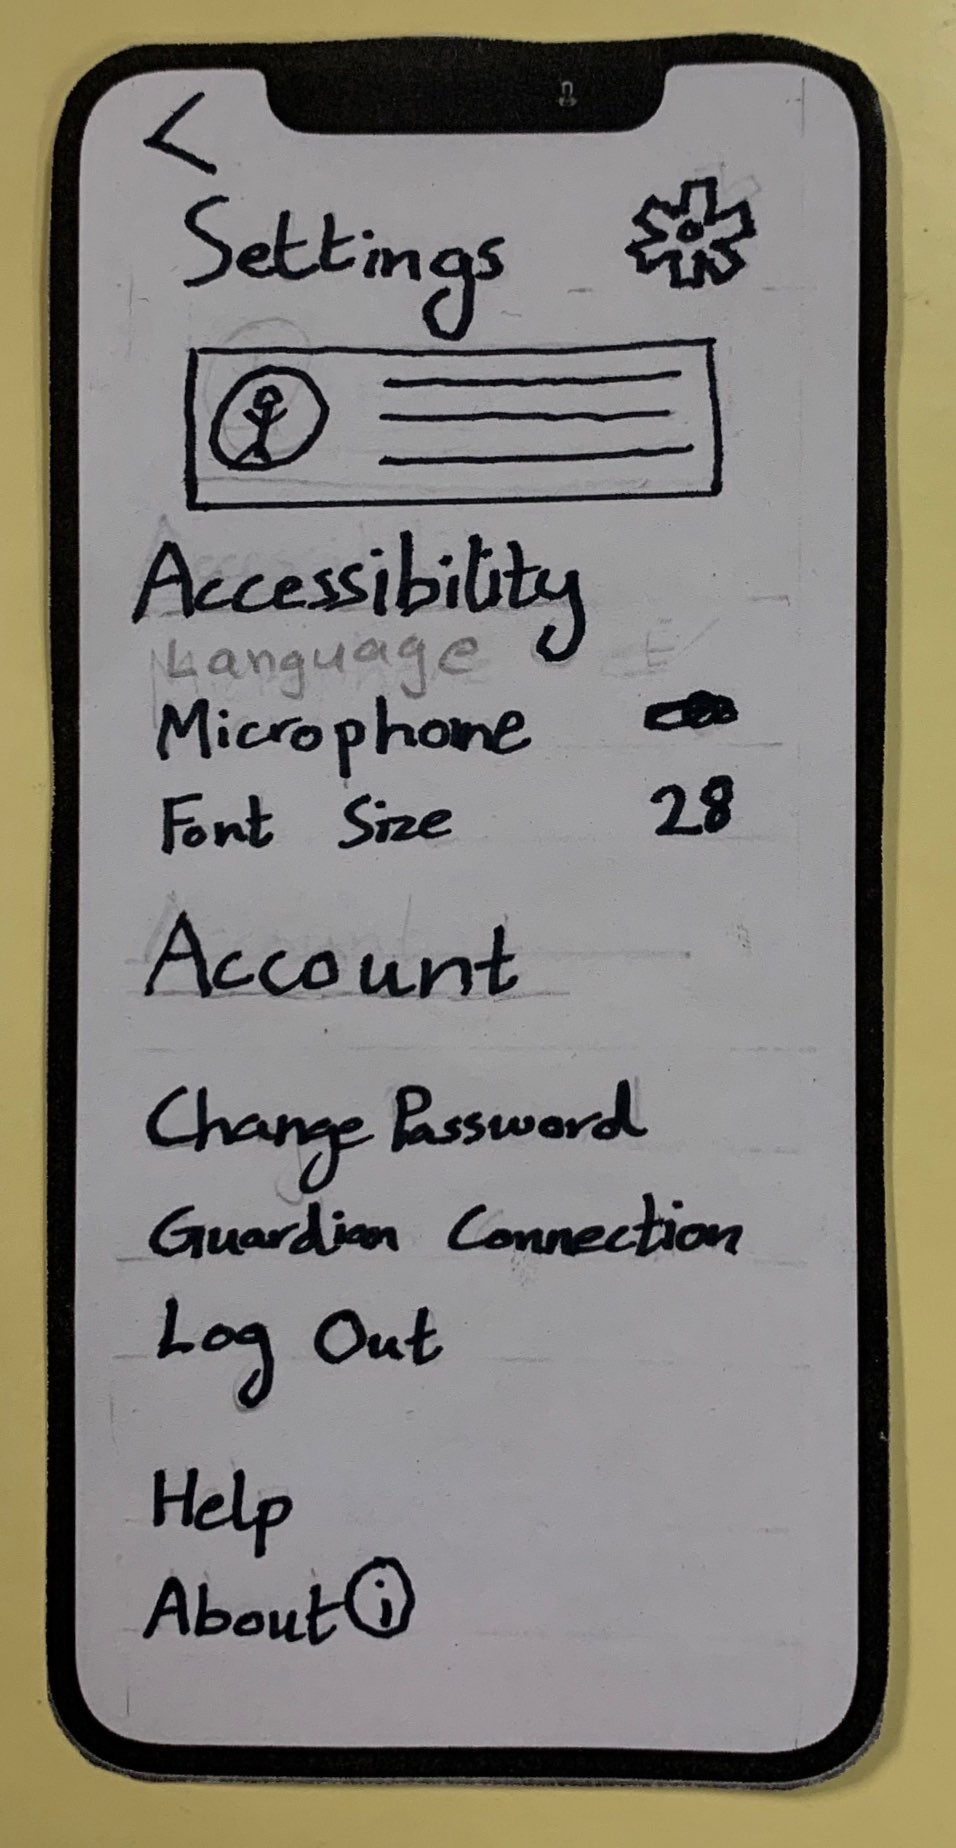 <
Settings
Accessibility
Language
Microphone
Font Size 28
Account
Change Password
Guardian Connection
Log Out
Help
About i